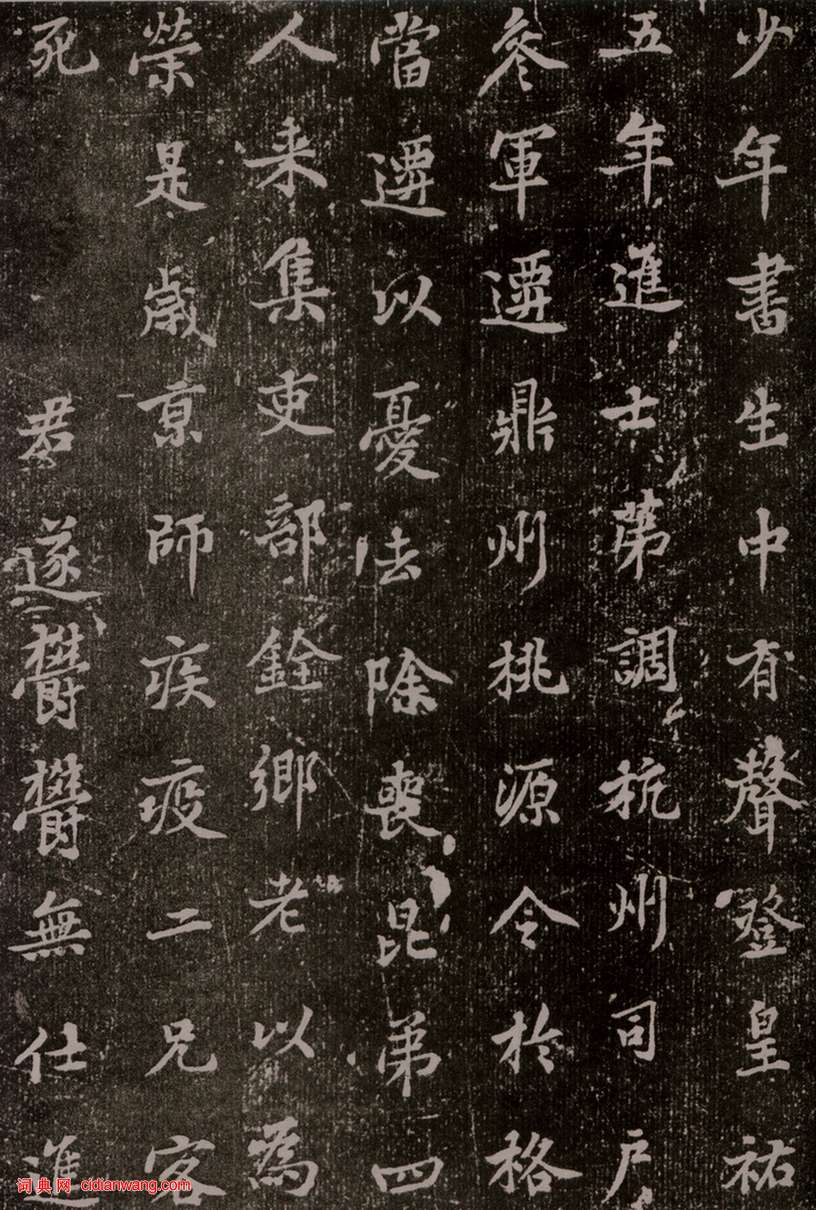 少年書生中有聲登皇祐
五年進士第調杭州司戶
參軍遷鼎州桃源令於格
當遷以憂法除喪昆弟四
人来集吏部銓鄉老以為
榮是歲京師疾疫二兄客
死 君遂鬱鬱無仕進
词典网 cidianwang.com